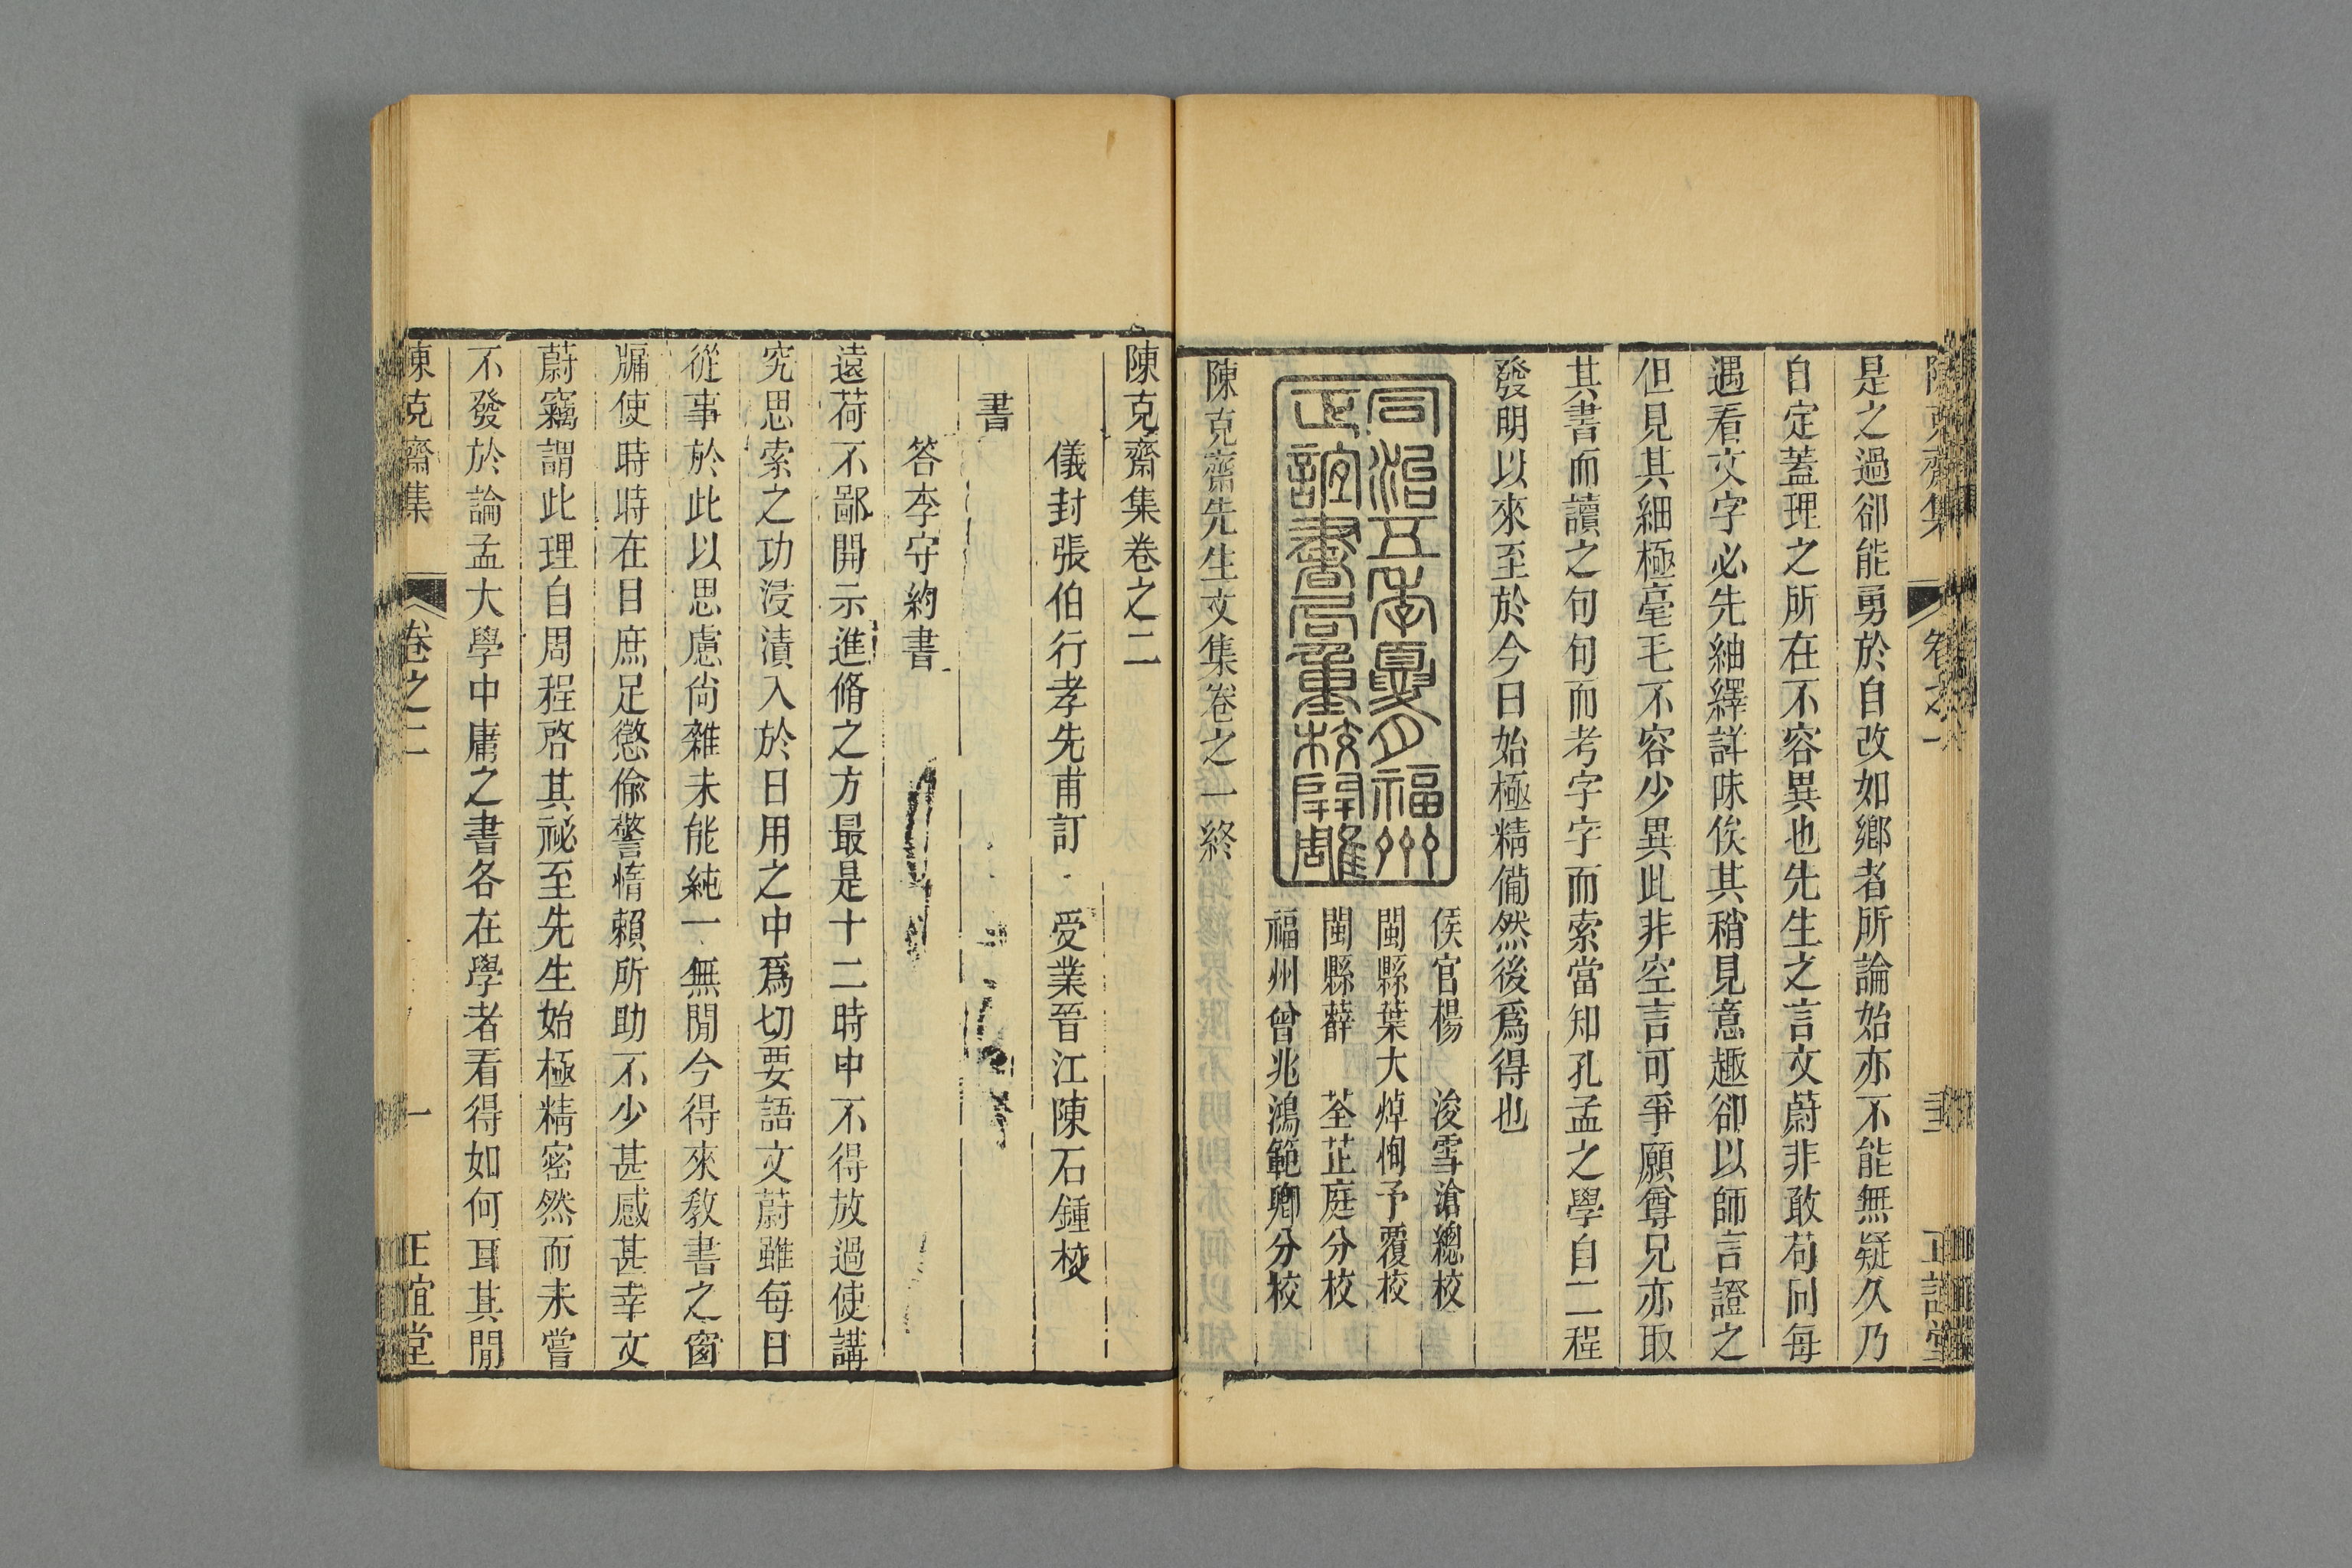 是之過卻能勇於自改如鄉者所論始亦不能無疑久乃
自定蓋理之所在不容異也先生之言文蔚非敢苟同每
遇看文字必先紬繹詳味俟其稍見意趣卻以師言證之
但見其細極毫毛不容少異此非空言可爭願尊兄亦取
其書而讀之句句而考字字而索當知孔孟之學自二程
發明以來至於今日始極精備然後爲得也
同治五年夏月福州
正誼書局重校開雕
侯官楊 浚雪滄總校
閩縣葉大焯恂予覆校
閩縣薛 荃芷庭分校
福州曾兆鴻範卿分校
陳克齋先生文集卷之一終
陳克齋集卷之二
儀封張伯行孝先甫訂 受業晉江陳石鍾校
書
答李守約書
遠荷不鄙開示進脩之方最是十二時中不得放過使講
究思索之功浸漬入於日用之中爲切要語文蔚雖每日
從事於此以思慮尙雜未能純一無閒今得來敎書之窗
牖使時時在目庶足懲偸警惰賴所助不少甚感甚幸文
蔚竊謂此理自周程啓其祕至先生始極精密然而未嘗
不發於論孟大學中庸之書各在學者看得如何耳其閒
陳克齋集 卷之二 一 正誼堂